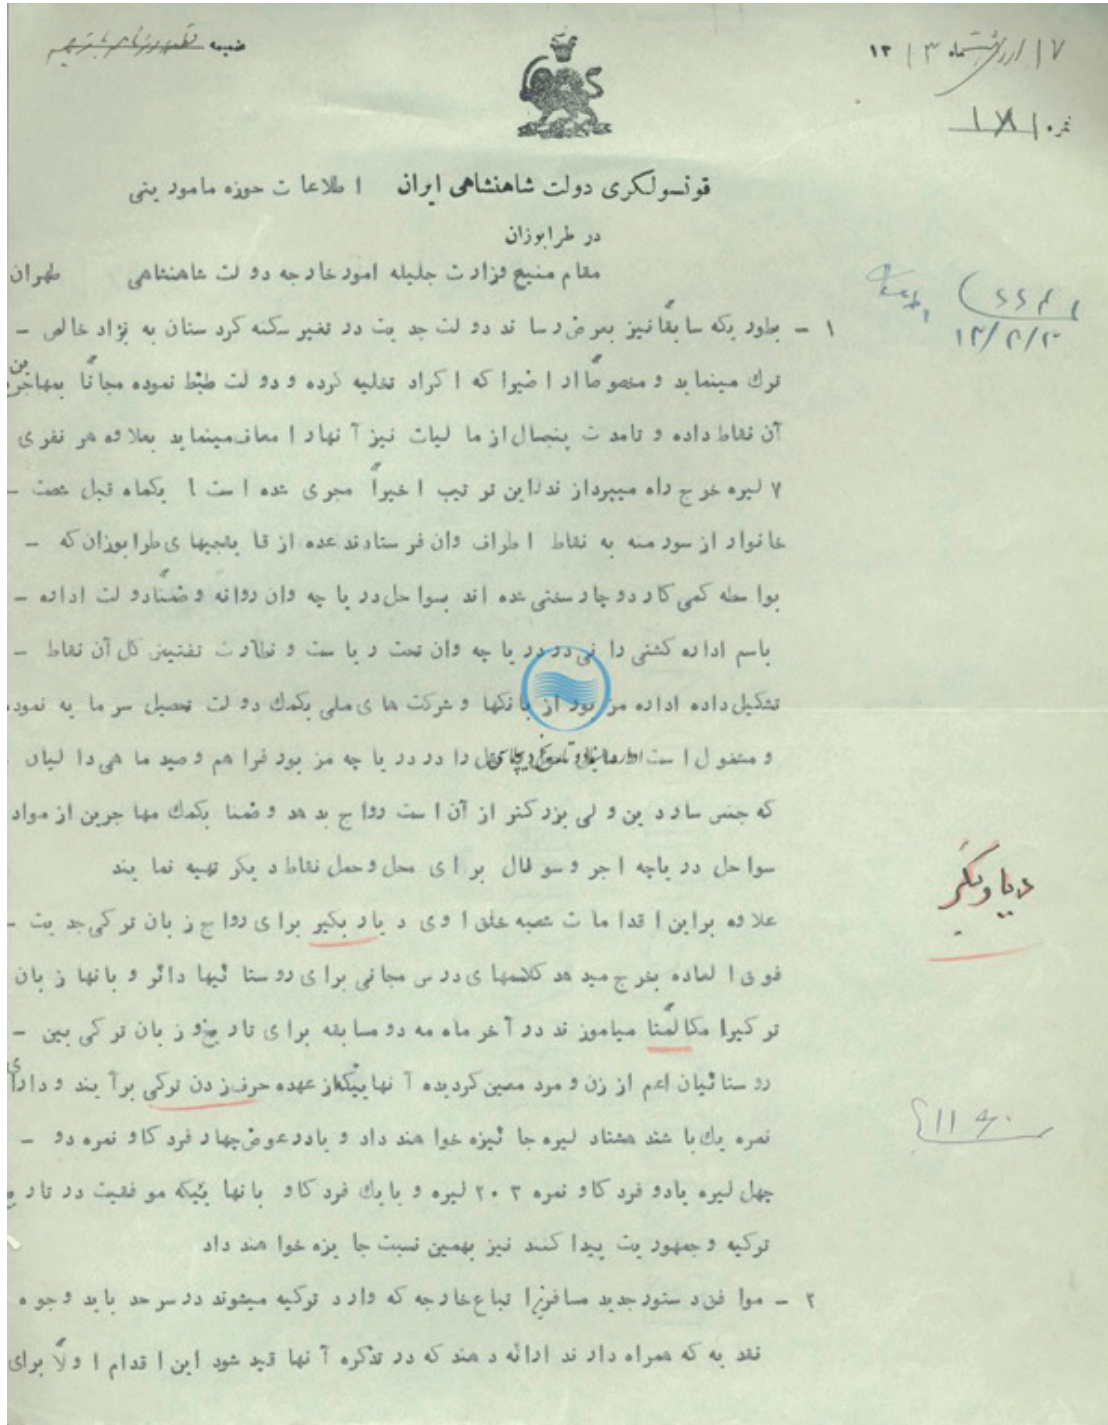 ۱۷ اردیبهشت ماه ۱۳۱۳
ضمیمه
نمره ۱۸۱
قونسولگری دولت شاهنشاهی ایران اطلاعات حوزه ماموریتی
در طرابوزان
مقام منیع وزارت جلیله امور خارجه دولت شاهنشاهی طهران
۱ - بطوریکه سابقاً نیز بعرض رساند دولت جدیت در تغیر سکنه کردستان به نژاد خالص -
ترك مینماید و مخصوصاً اراضیرا که اکراد تخلیه کرده و دولت ضبط نموده مجاناً بمهاجرین
آن نقاط داده و تامدت پنجسال از مالیات نیز آنهارا معاف مینماید بعلاوه هر نفری
۷ لیره خرج راه میپردازند این ترتیب اخیراً مجری شده است یکماه قبل شصت -
خانوار از سورمنه به نقاط اطراف وان فرستادند عده از قایقچیهای طرابوزان که -
بواسطه کمی کار دوچار سختی شده اند بسواحل دریاچه وان روانه و ضمناً دولت اداره -
باسم اداره کشتی رانی در دریاچه وان تحت ریاست و نظارت تفتیش کل آن نقاط -
تشکیل داده اداره مزبور از بانکها و شرکت های ملی بکمك دولت تحصیل سرمایه نموده
و مشغول است را در دریاچه مزبور فراهم و صید ماهی دالیان
که جنس ساردین ولی بزرگتر از آن است رواج بدهد و ضمنا بکمك مهاجرین از مواد
سواحل دریاچه اجر و سوفال برای محل و حمل نقاط دیگر تهیه نمایند
دیاربکر
علاوه براین اقدامات شعبه خلق اوی دیاربکیر برای رواج زبان ترکی جدیت -
فوق العاده بخرج میدهد کلاسهای درس مجانی برای روستائیها دائر و بانها زبان
ترکیرا مکالمتاً میاموزند در آخر ماه مه دو مسابقه برای تاریخ و زبان ترکی بین -
روستائیان اعم از زن و مرد معین گردیده آنهائیکه از عهده حرف زدن ترکی برآیند و دارای
نمره یك باشند هشتاد لیره جائیزه خواهند داد و یا در عوض چهار فرد گاو نمره دو -
چهل لیره یا دو فرد گاو نمره ۳ ۲۰ لیره و یا یك فرد گاو بانهائیکه موفقیت در تاریخ
ترکیه و جمهوریت پیدا کنند نیز بهمین نسبت جایزه خواهند داد
۲ - موافق دستور جدید مسافرین اتباع خارجه که وارد ترکیه میشوند در سرحد باید وجوه
نقدیه که همراه دارند ارائه دهند که در تذکره آنها قید شود این اقدام اولاً برای